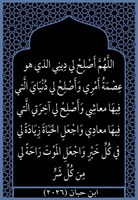 اللَّهُمَّ أَصْلِحْ لِي دِينِي الذي هو
عِصْمَةُ أَمْرِي وَأَصْلِحْ لِي دُنْيَايَ الَّتي
فِيهَا معاشِي وَأَصْلِحْ لِي آخِرَتي الَّتي
فِيهَا معادِي وَاجْعَلِ الحَيَاةَ زِيَادَةً لِي
في كُلِّ خَيْرٍ وَاجْعَلِ المَوْتَ رَاحَةً لِي
مِن كُلِّ شَرٍّ
ابن حبان (٢٠٢٦)